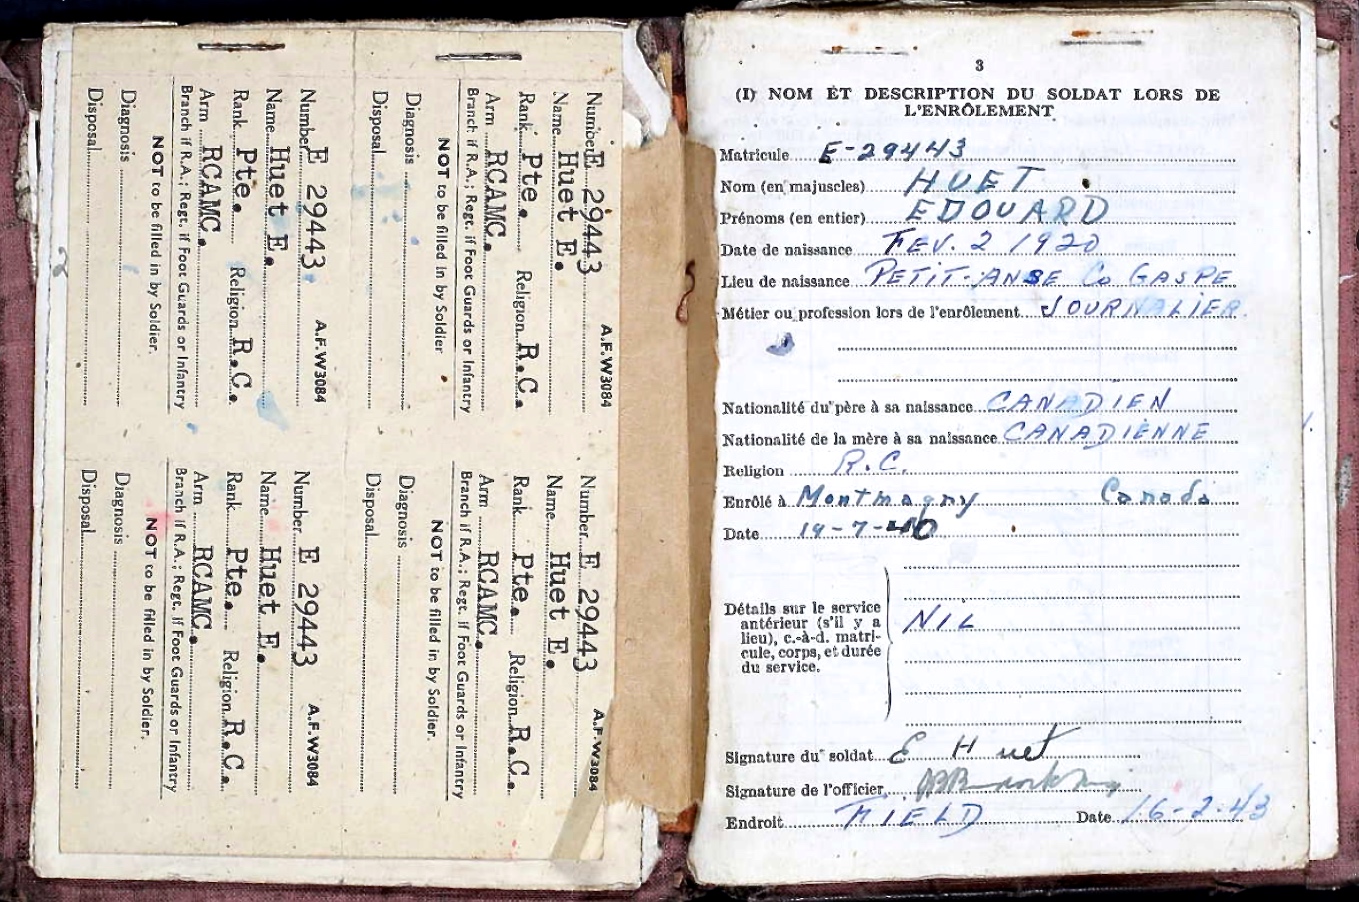 Number E 29443 A.F.W3084
Name Huet E.
Rank Pte. Religion R.C.
Arm RCAMC.
Branch if R.A.; Regt. if Foot Guards or Infantry
NOT to be filled in by Soldier
Diagnosis
Disposal
Number E 29443. A.F.W3084
Name Huet E.
Rank Pte. Religion R.C.
Arm RCAMC.
Branch if R.A.; Regt. if Foot Guards or Infantry
NOT to be filled in by Soldier.
Diagnosis
Disposal
Number E 29443 A.F.W3084
Name Huet E.
Rank Pte. Religion R.C.
Arm RCAMC.
Branch if R.A.; Regt. if Foot Guards or Infantry
NOT to be filled in by Soldier.
Diagnosis
Disposal
Number E 29443 A.F.W3084
Name Huet E.
Rank Pte. Religion R.C.
Arm RCAMC.
Branch if R.A.; Regt. if Foot Guards or Infantry
NOT to be filled in by Soldier.
Diagnosis
Disposal
3
(I) NOM ET DESCRIPTION DU SOLDAT LORS DE
L'ENRÔLEMENT
Matricule E-29443
Nom (en majuscles) HUET
Prénoms (en entier) EDOUARD
Date de naissance FEV. 2 1920
Lieu de naissance PETIT-ANSE Co GASPE
Métier ou profession lors de l'enrôlement JOURNALIER
Nationalité du père à sa naissance CANADIEN
Nationalité de la mère à sa naissance CANADIENNE
Religion R.C.
Enrôlé à Montmagny Canada
Date 19-7-40
Détails sur le service
antérieur (s'il y a
lieu), c.-à-d. matri-
cule, corps, et durée
du service.
NIL
Signature du soldat E Huet
Signature de l'officier
Endroit FIELD Date 16-2-43